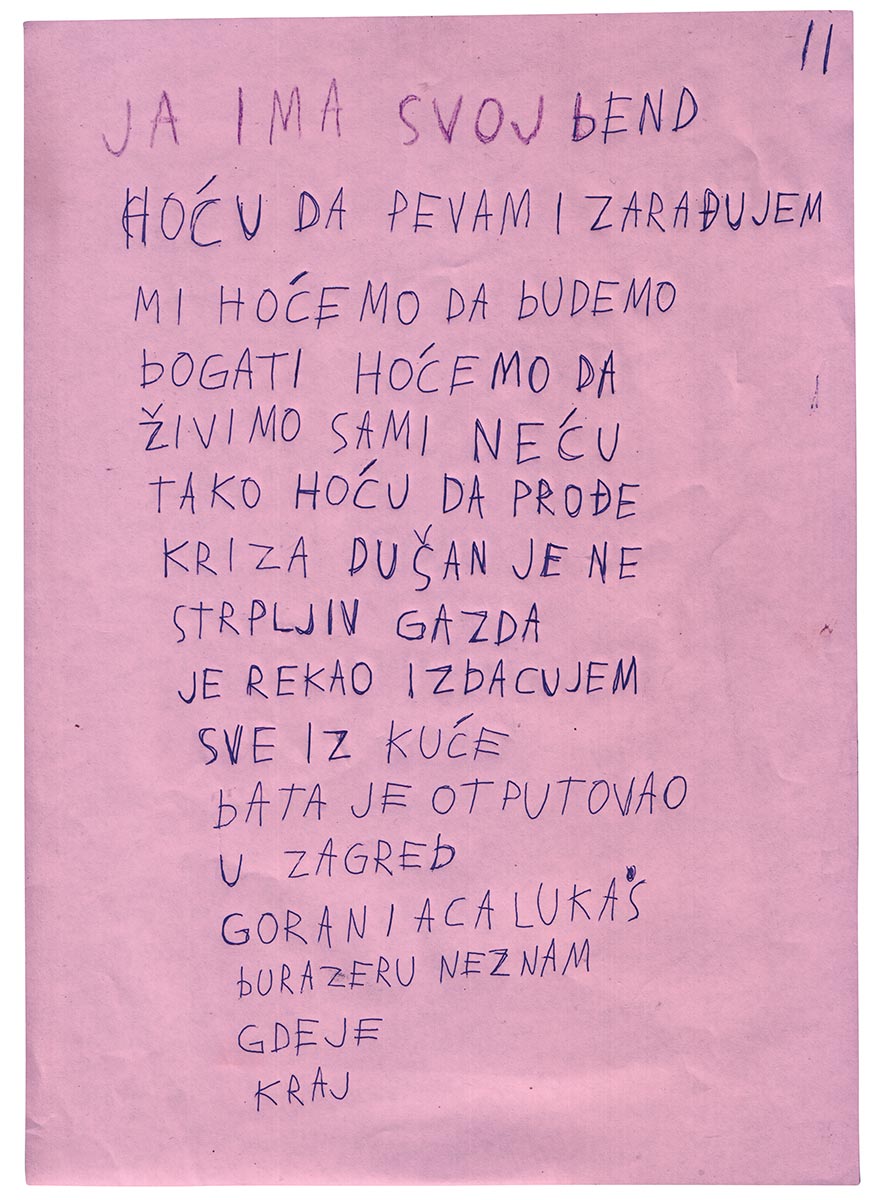 11
JA IMA SVOJ bEND
HOĆU DA PEVAM I ZARAĐUJEM
MI HOĆEMO DA bUDEMO
bOGATI HOĆEMO DA
ŽIVIMO SAMI NEĆU
TAKO HOĆU DA PROĐE
KRIZA DUŠAN JE NE
STRPLJIV GAZDA
JE REKAO IZbACUJEM
SVE IZ KUĆE
bATA JE OTPUTOVAO
U ZAGREb
GORAN I ACA LUKAS
bURAZERU NEZNAM
GDEJE
KRAJ